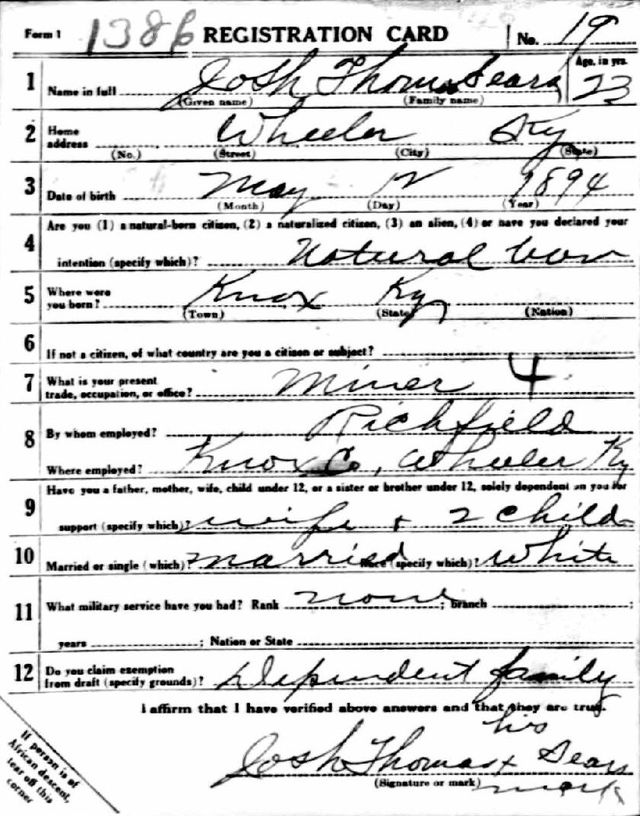 Form 1 1386 REGISTRATION CARD No. 19
1 Name in full Josh Thomas Sears Age, in yrs. 23
(Given name) (Family name)
2 Home address Wheeler Ky
(No.) (Street) (City) (State)
3 Date of birth May 12 1894
(Month) (Day) (Year)
4 Are you (1) a natural-born citizen, (2) a naturalized citizen, (3) an alien, (4) or have you declared your
intention (specify which)? Natural born
5 Where were you born? Knox Ky
(Town) (State) (Nation)
6 If not a citizen, of what country are you a citizen or subject?
7 What is your present trade, occupation, or office? Miner 4
8 By whom employed? Richfield
Where employed? Knox Co, Wheeler Ky
9 Have you a father, mother, wife, child under 12, or a sister or brother under 12, solely dependent on you for
support (specify which)? wife + 2 child
10 Married or single (which)? married Race (specify which)? White
11 What military service have you had? Rank none ; branch ;
years ; Nation or State
12 Do you claim exemption from draft (specify grounds)? Dependent family
I affirm that I have verified above answers and that they are true.
his
Josh Thomas x Sears
(Signature or mark) mark
If person is of
African descent,
tear off this
corner